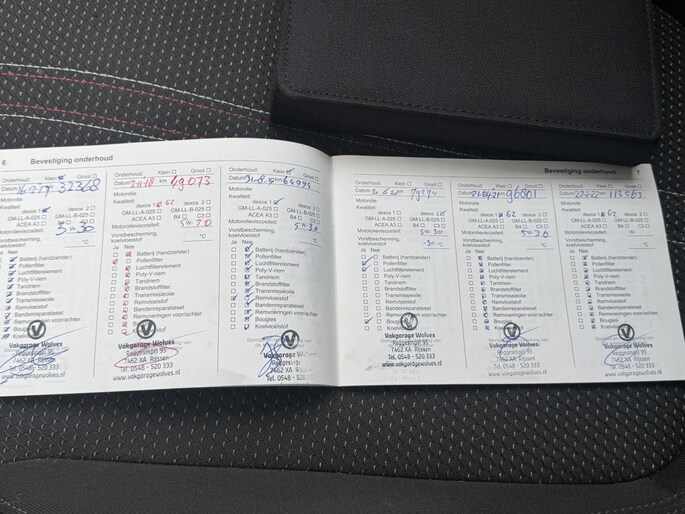 6 Bevestiging onderhoud
Onderhoud: Klein Groot
Datum km 32348
Motorolie
Kwaliteit:
dexos 1 dexos 2
GM-LL-A-025 GM-LL-B-025
ACEA A3 B4 C3
Motorolieviscositeit: 5W30
Vorstbescherming, koelvloeistof °C
Ja Nee
Batterij (handzender)
Pollenfilter
Luchtfilterelement
Poly-V-riem
Tandriem
Brandstoffilter
Transmissieolie
Remvloeistof
Bandenreparatieset
Remvoeringen voor/achter
Bougies
Koelvloeistof
Vakgarage Wolves
Reggesingel 95
7462 XA Rijssen
Tel. 0548 - 520 333
www.vakgaragewolves.nl
Onderhoud: Klein Groot
Datum km 49073
Motorolie
Kwaliteit:
dexos 1 62
GM-LL-A-025 GM-LL-B-025
ACEA A3 B4 C3
Motorolieviscositeit: 5W-30
Vorstbescherming, koelvloeistof °C
Ja Nee
Batterij (handzender)
Pollenfilter
Luchtfilterelement
Poly-V-riem
Tandriem
Brandstoffilter
Transmissieolie
Remvloeistof
Bandenreparatieset
Remvoeringen voor/achter
Bougies
Koelvloeistof
Vakgarage Wolves
Reggesingel 95
7462 XA Rijssen
Tel. 0548 - 520 333
www.vakgaragewolves.nl
Onderhoud: Klein Groot
Datum 64974
Motorolie
Kwaliteit:
dexos 1 dexos 2
GM-LL-A-025 GM-LL-B-025
ACEA A3 B4 C3
Motorolieviscositeit: 5W30
Vorstbescherming, koelvloeistof °C
Ja Nee
Batterij (handzender)
Pollenfilter
Luchtfilterelement
Poly-V-riem
Tandriem
Brandstoffilter
Transmissieolie
Remvloeistof
Bandenreparatieset
Remvoeringen voor/achter
Bougies
Koelvloeistof
Vakgarage Wolves
Reggesingel 95
7462 XA Rijssen
Tel. 0548 - 520 333
www.vakgaragewolves.nl
Bevestiging onderhoud 7
Onderhoud: Klein Groot
Datum
Motorolie
Kwaliteit:
dexos 1 dexos 2
GM-LL-A-025 GM-LL-B-025
ACEA A3 B4 C3
Motorolieviscositeit: 5W-30
Vorstbescherming, koelvloeistof °C
Ja Nee
Batterij (handzender)
Pollenfilter
Luchtfilterelement
Poly-V-riem
Tandriem
Brandstoffilter
Transmissieolie
Remvloeistof
Bandenreparatieset
Remvoeringen voor/achter
Bougies
Koelvloeistof
Vakgarage Wolves
Reggesingel 95
7462 XA Rijssen
Tel. 0548 - 520 333
www.vakgaragewolves.nl
Onderhoud: Klein Groot
Datum
Motorolie
Kwaliteit:
dexos 1 62
GM-LL-A-025 GM-LL-B-025
ACEA A3 B4 C3
Motorolieviscositeit: 5W30
Vorstbescherming, koelvloeistof °C
Ja Nee
Batterij (handzender)
Pollenfilter
Luchtfilterelement
Poly-V-riem
Tandriem
Brandstoffilter
Transmissieolie
Remvloeistof
Bandenreparatieset
Remvoeringen voor/achter
Bougies
Koelvloeistof
Vakgarage Wolves
Reggesingel 95
7462 XA Rijssen
Tel. 0548 - 520 333
www.vakgaragewolves.nl
Onderhoud: Klein Groot
Datum 113563
Motorolie
Kwaliteit:
dexos 1 62
GM-LL-A-025 GM-LL-B-025
ACEA A3 B4 C3
Motorolieviscositeit:
Vorstbescherming, koelvloeistof °C
Ja Nee
Batterij (handzender)
Pollenfilter
Luchtfilterelement
Poly-V-riem
Tandriem
Brandstoffilter
Transmissieolie
Remvloeistof
Bandenreparatieset
Remvoeringen voor/achter
Bougies
Koelvloeistof
Vakgarage Wolves
Reggesingel 95
7462 XA Rijssen
Tel. 0548 - 520 333
www.vakgaragewolves.nl